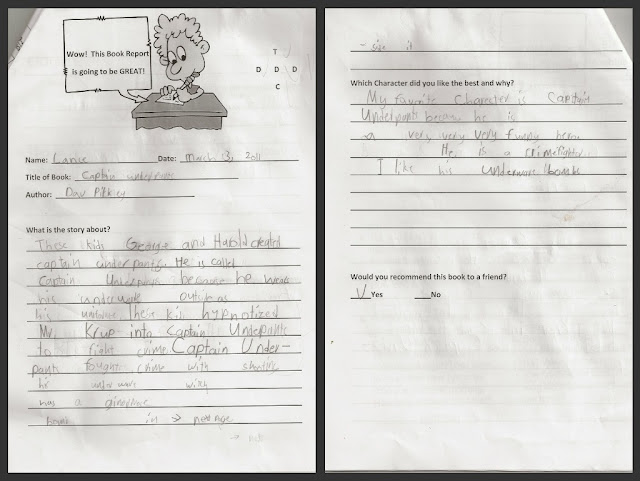 Wow! This Book Report
is going to be GREAT!
T
D D D
C
Name: Date: March 3, 2011
Title of Book: Captain underpants
Author: Dav Pilkey
What is the story about?
These kids George and Harold created
captain underpants. He is called
Captain Underpants because he wears
his outside as
his uniform. These kids hypnotized
Mr. Krup into Captain Underpants
to fight crime. Captain Under-
pants fought crime with
his under ware with
was a
in → next page
- size it
Which Character did you like the best and why?
My favorite character is Captain
Underpants because he is
a very very very funny hero.
He is a crimefighter
I like his underware bombs
Would you recommend this book to a friend?
√ Yes No